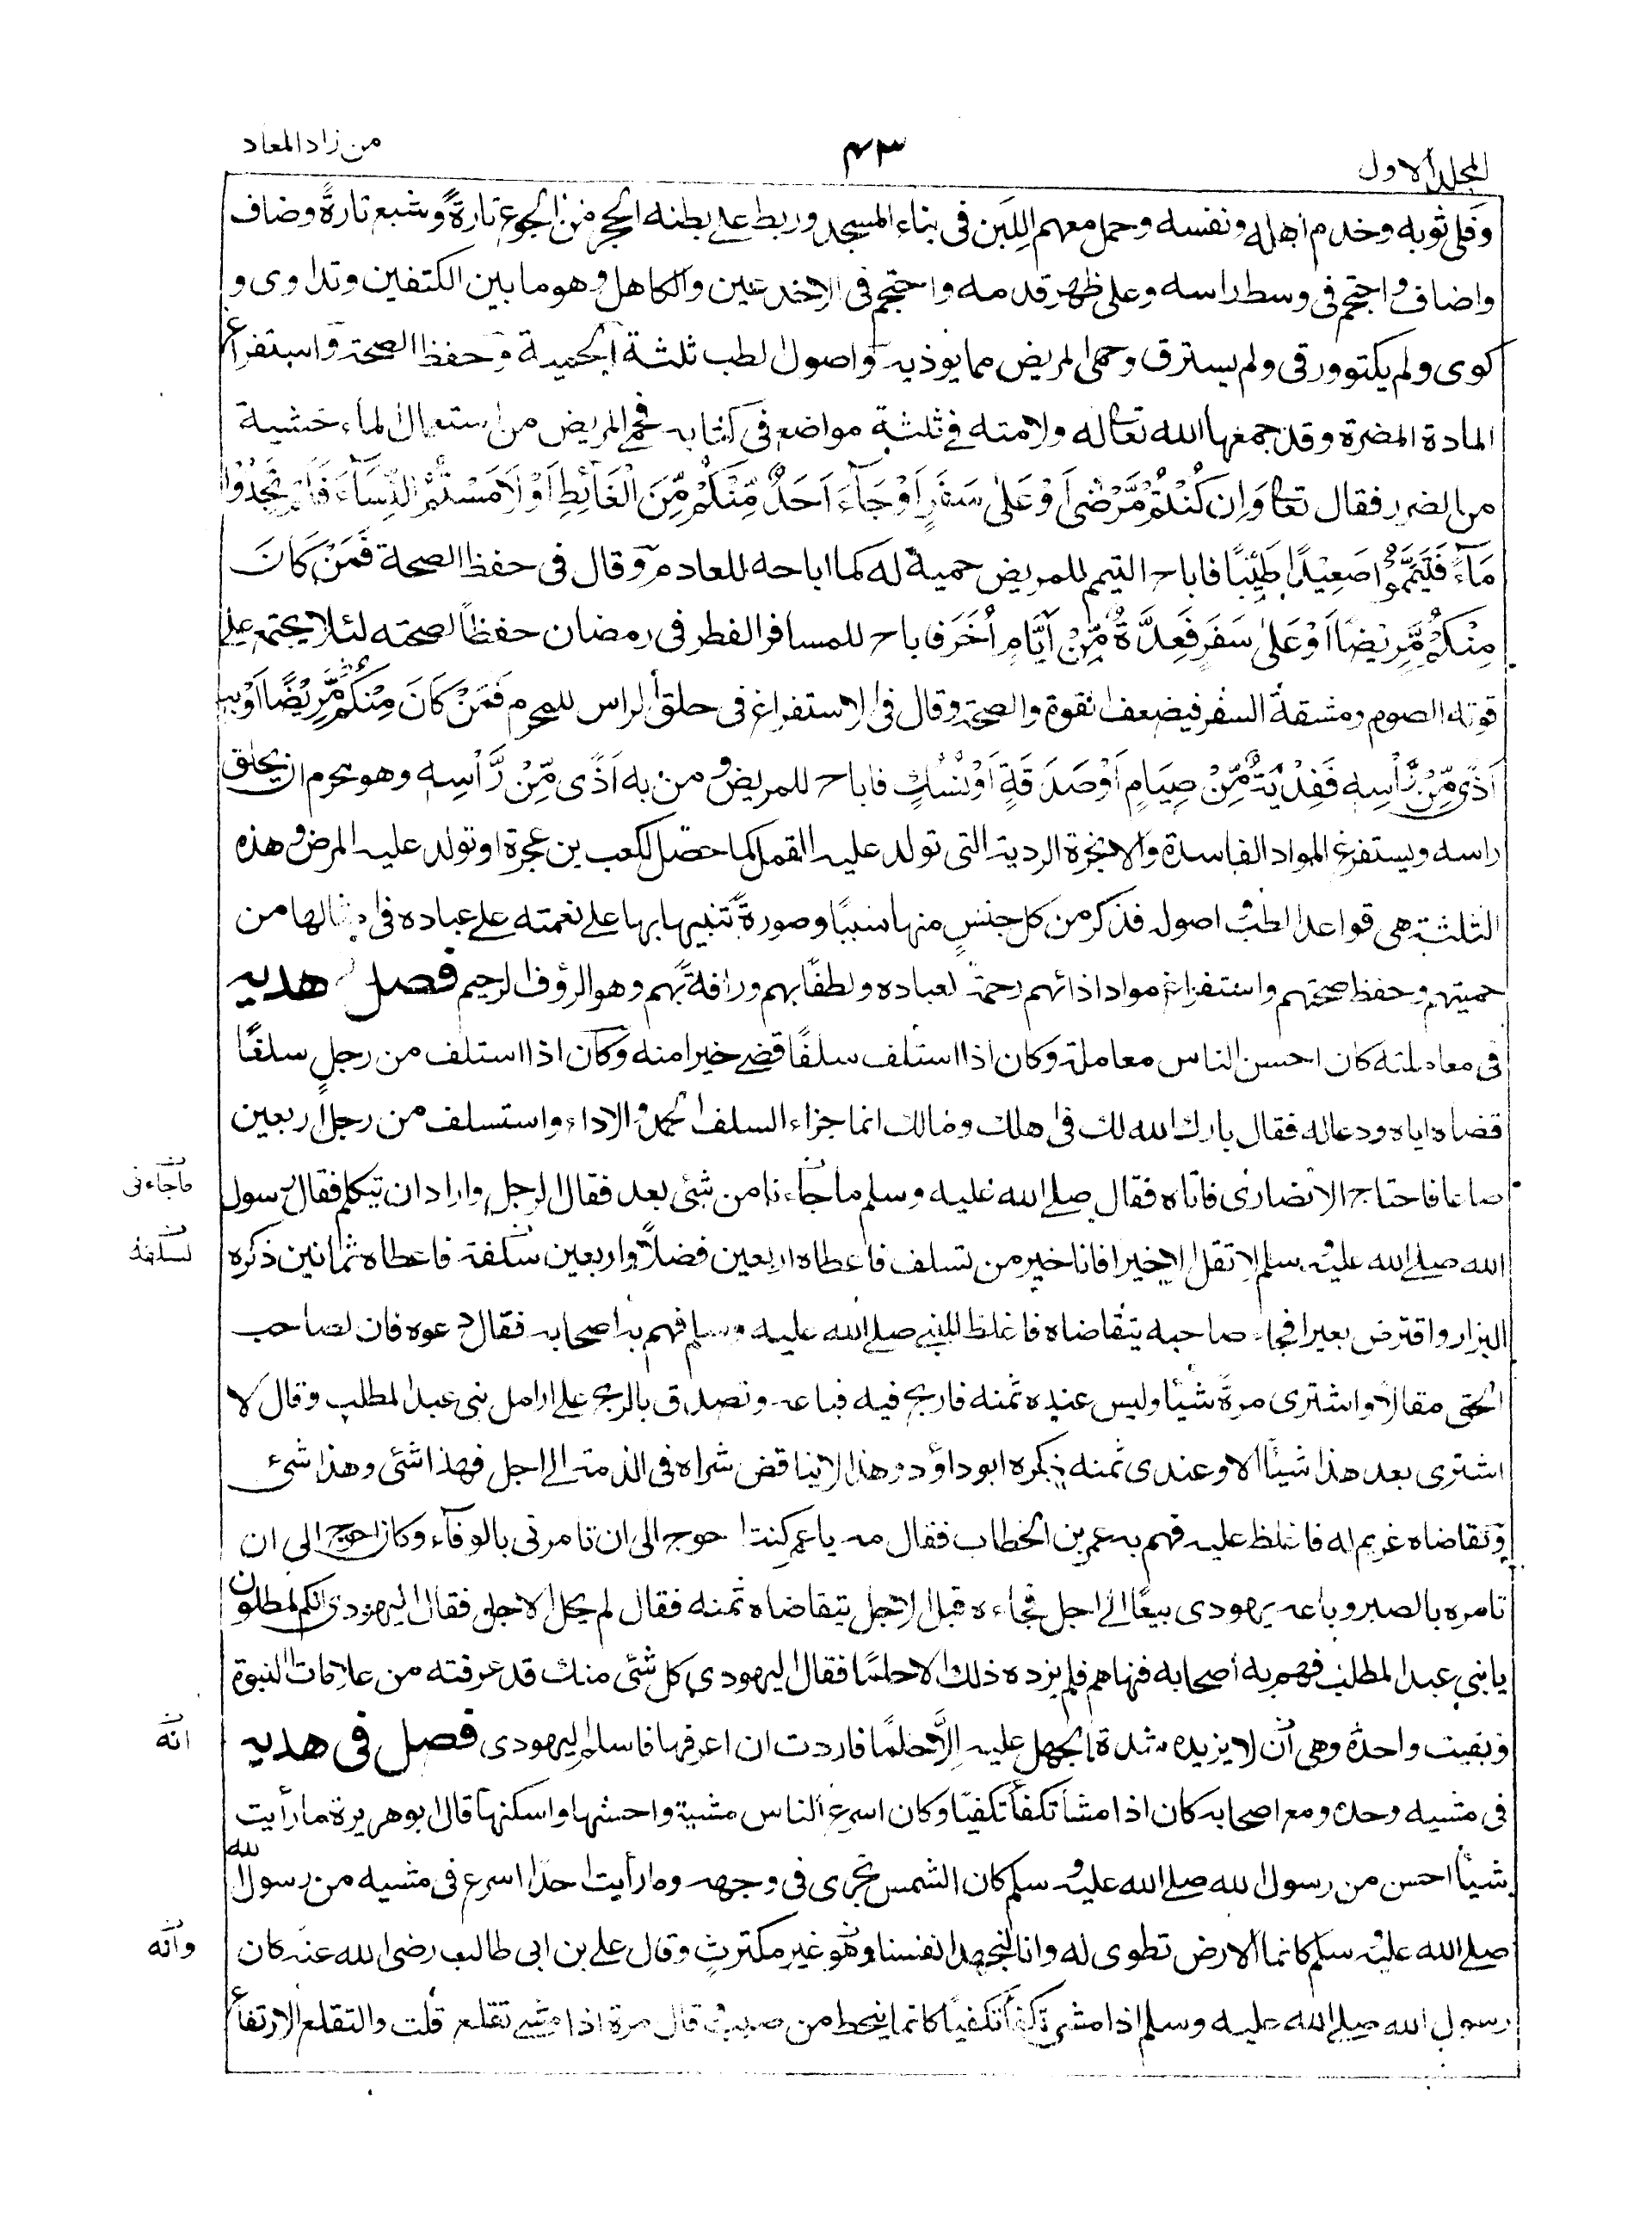 المجلد الاول
٤٣
من زاد المعاد
وفلى ثوبه وخدم اهله ونفسه وحمل معهم اللبن فى بناء المسجد وربط على بطنه الحجر من الجوع تارةً وشبع تارةً وضاف
واضاف واحتجم فى وسط راسه وعلى ظهر قدمه واحتجم فى الاخدعين والكاهل وهو ما بين الكتفين وتداوى و
كوى ولم يكتو ورقى ولم يسترق وحمى المريض مما يوذيه واصول الطب ثلثة الحمية وحفظ الصحة واستفراغ
المادة المضرة وقد جمعها الله تعالى له ولامته فى ثلثة مواضع فى كتابه فحمى المريض من استعمال الماء خشية
من الضرر فقال تعالى وَاِن كُنْتُمْ مَّرْضٰى اَوْ عَلٰى سَفَرٍ اَوْ جَآءَ اَحَدٌ مِّنْكُمْ مِّنَ الْغَآئِطِ اَوْ لَامَسْتُمُ النِّسَآءَ فَلَمْ تَجِدُوْا
مَآءً فَتَيَمَّمُوْا صَعِيْدًا طَيِّبًا فاباح التيمم للمريض حمية له كما اباحه للعادم وقال فى حفظ الصحة فَمَنْ كَانَ
مِنْكُمْ مَّرِيْضًا اَوْ عَلٰى سَفَرٍ فَعِدَّةٌ مِّنْ اَيَّامٍ اُخَرَ فاباح للمسافر الفطر فى رمضان حفظًا لصحته لئلا يجتمع على
قوته الصوم ومشقة السفر فيضعف القوة والصحة وقال فى الاستفراغ فى حلق الراس للمحرم فَمَنْ كَانَ مِنْكُمْ مَّرِيْضًا اَوْ بِهٖ
اَذًى مِّنْ رَّاْسِهٖ فَفِدْيَةٌ مِّنْ صِيَامٍ اَوْ صَدَقَةٍ اَوْ نُسُكٍ فاباح للمريض ومن به اَذًى مِّنْ رَّاْسِهٖ وهو محرم ان يحلق
راسه ويستفرغ المواد الفاسدة والابخرة الردية التى تولد عليه القمل كما حصل لكعب بن عجرة او تولد عليه المرض وهذه
الثلثة هى قواعد الطب واصوله فذكر من كل جنسٍ منها سببًا وصورةً تنبيها بها على نعمته على عباده فى امثالها من
حميتهم وحفظ صحتهم واستفراغ مواد اذائهم رحمة لعباده ولطفًا بهم ورافةً بهم وهو الرؤف الرحيم فصل هديه
فى معاملته كان احسن الناس معاملة وكان اذا استلف سلفًا قضى خيرا منه وكان اذا استلف من رجلٍ سلفًا
قضاه اياه ودعا له فقال بارك الله لك فى اهلك ومالك انما جزاء السلف الحمد والاداء واستسلف من رجل اربعين
صاعا فاحتاج الانصارى فاتاه فقال صلى الله عليه وسلم ما جاءنا من شئ بعد فقال الرجل واراد ان يتكلم فقال رسول
الله صلى الله عليه وسلم لا تقل الا خيرا فانا خير من تسلف فاعطاه اربعين فضلاً واربعين سلفة فاعطاه ثمانين ذكره
البزار واقترض بعيرا فجاء صاحبه يتقاضاه فاغلظ للنبى صلى الله عليه وسلم فهم به اصحابه فقال دعوه فان لصاحب
الحق مقالاً واشترى مرةً شيئا وليس عنده ثمنه فاربح فيه فباعه وتصدق بالربح على ارامل بنى عبد المطلب وقال لا
اشترى بعد هذا شيئًا الا وعندى ثمنه ذكره ابو داؤد وهذا لا يناقض شراه فى الذمة الى اجل فهذا شئى وهذا شئ
وتقاضاه غريم له فاغلظ عليه فهم به عمر بن الخطاب فقال مه يا عمر كنت احوج الى ان تامرنى بالوفاء وكان احوج الى ان
تامره بالصبر وباعه يهودى بيعًا الى اجل فجاءه قبل الاجل يتقاضاه ثمنه فقال لم يحل الاجل فقال اليهودى انكم لمطلون
يا بنى عبد المطلب فهم به اصحابه فنهاهم فلم يزده ذلك الا حلمًا فقال اليهودى كل شئى منك قد عرفته من علامات النبوة
وبقيت واحدة وهى ان لا يزيده شدة الجهل عليه اِلَّا حلمًا فاردت ان اعرفها فاسلم اليهودى فصل فى هديه
فى مشيه وحده ومع اصحابه كان اذا مشا تكفأ تكفيًا وكان اسرع الناس مشية واحسنها واسكنها قال ابو هريرة ما رأيت
شيئًا احسن من رسول الله صلى الله عليه وسلم كان الشمس تجرى فى وجهه وما رأيت احدًا اسرع فى مشيه من رسول الله
صلى الله عليه وسلم كانما الارض تطوى له وانا لنجهد انفسنا وهو غير مكترثٍ وقال على بن ابى طالب رضى الله عنه كان
رسول الله صلى الله عليه وسلم اذا مشى تكفأ تكفيًا كانما ينحط من صبب وقال مرة اذا مشى تقلع قلت والتقلع الارتفاع
ماجاءنى
لسلفه
انه
وانه